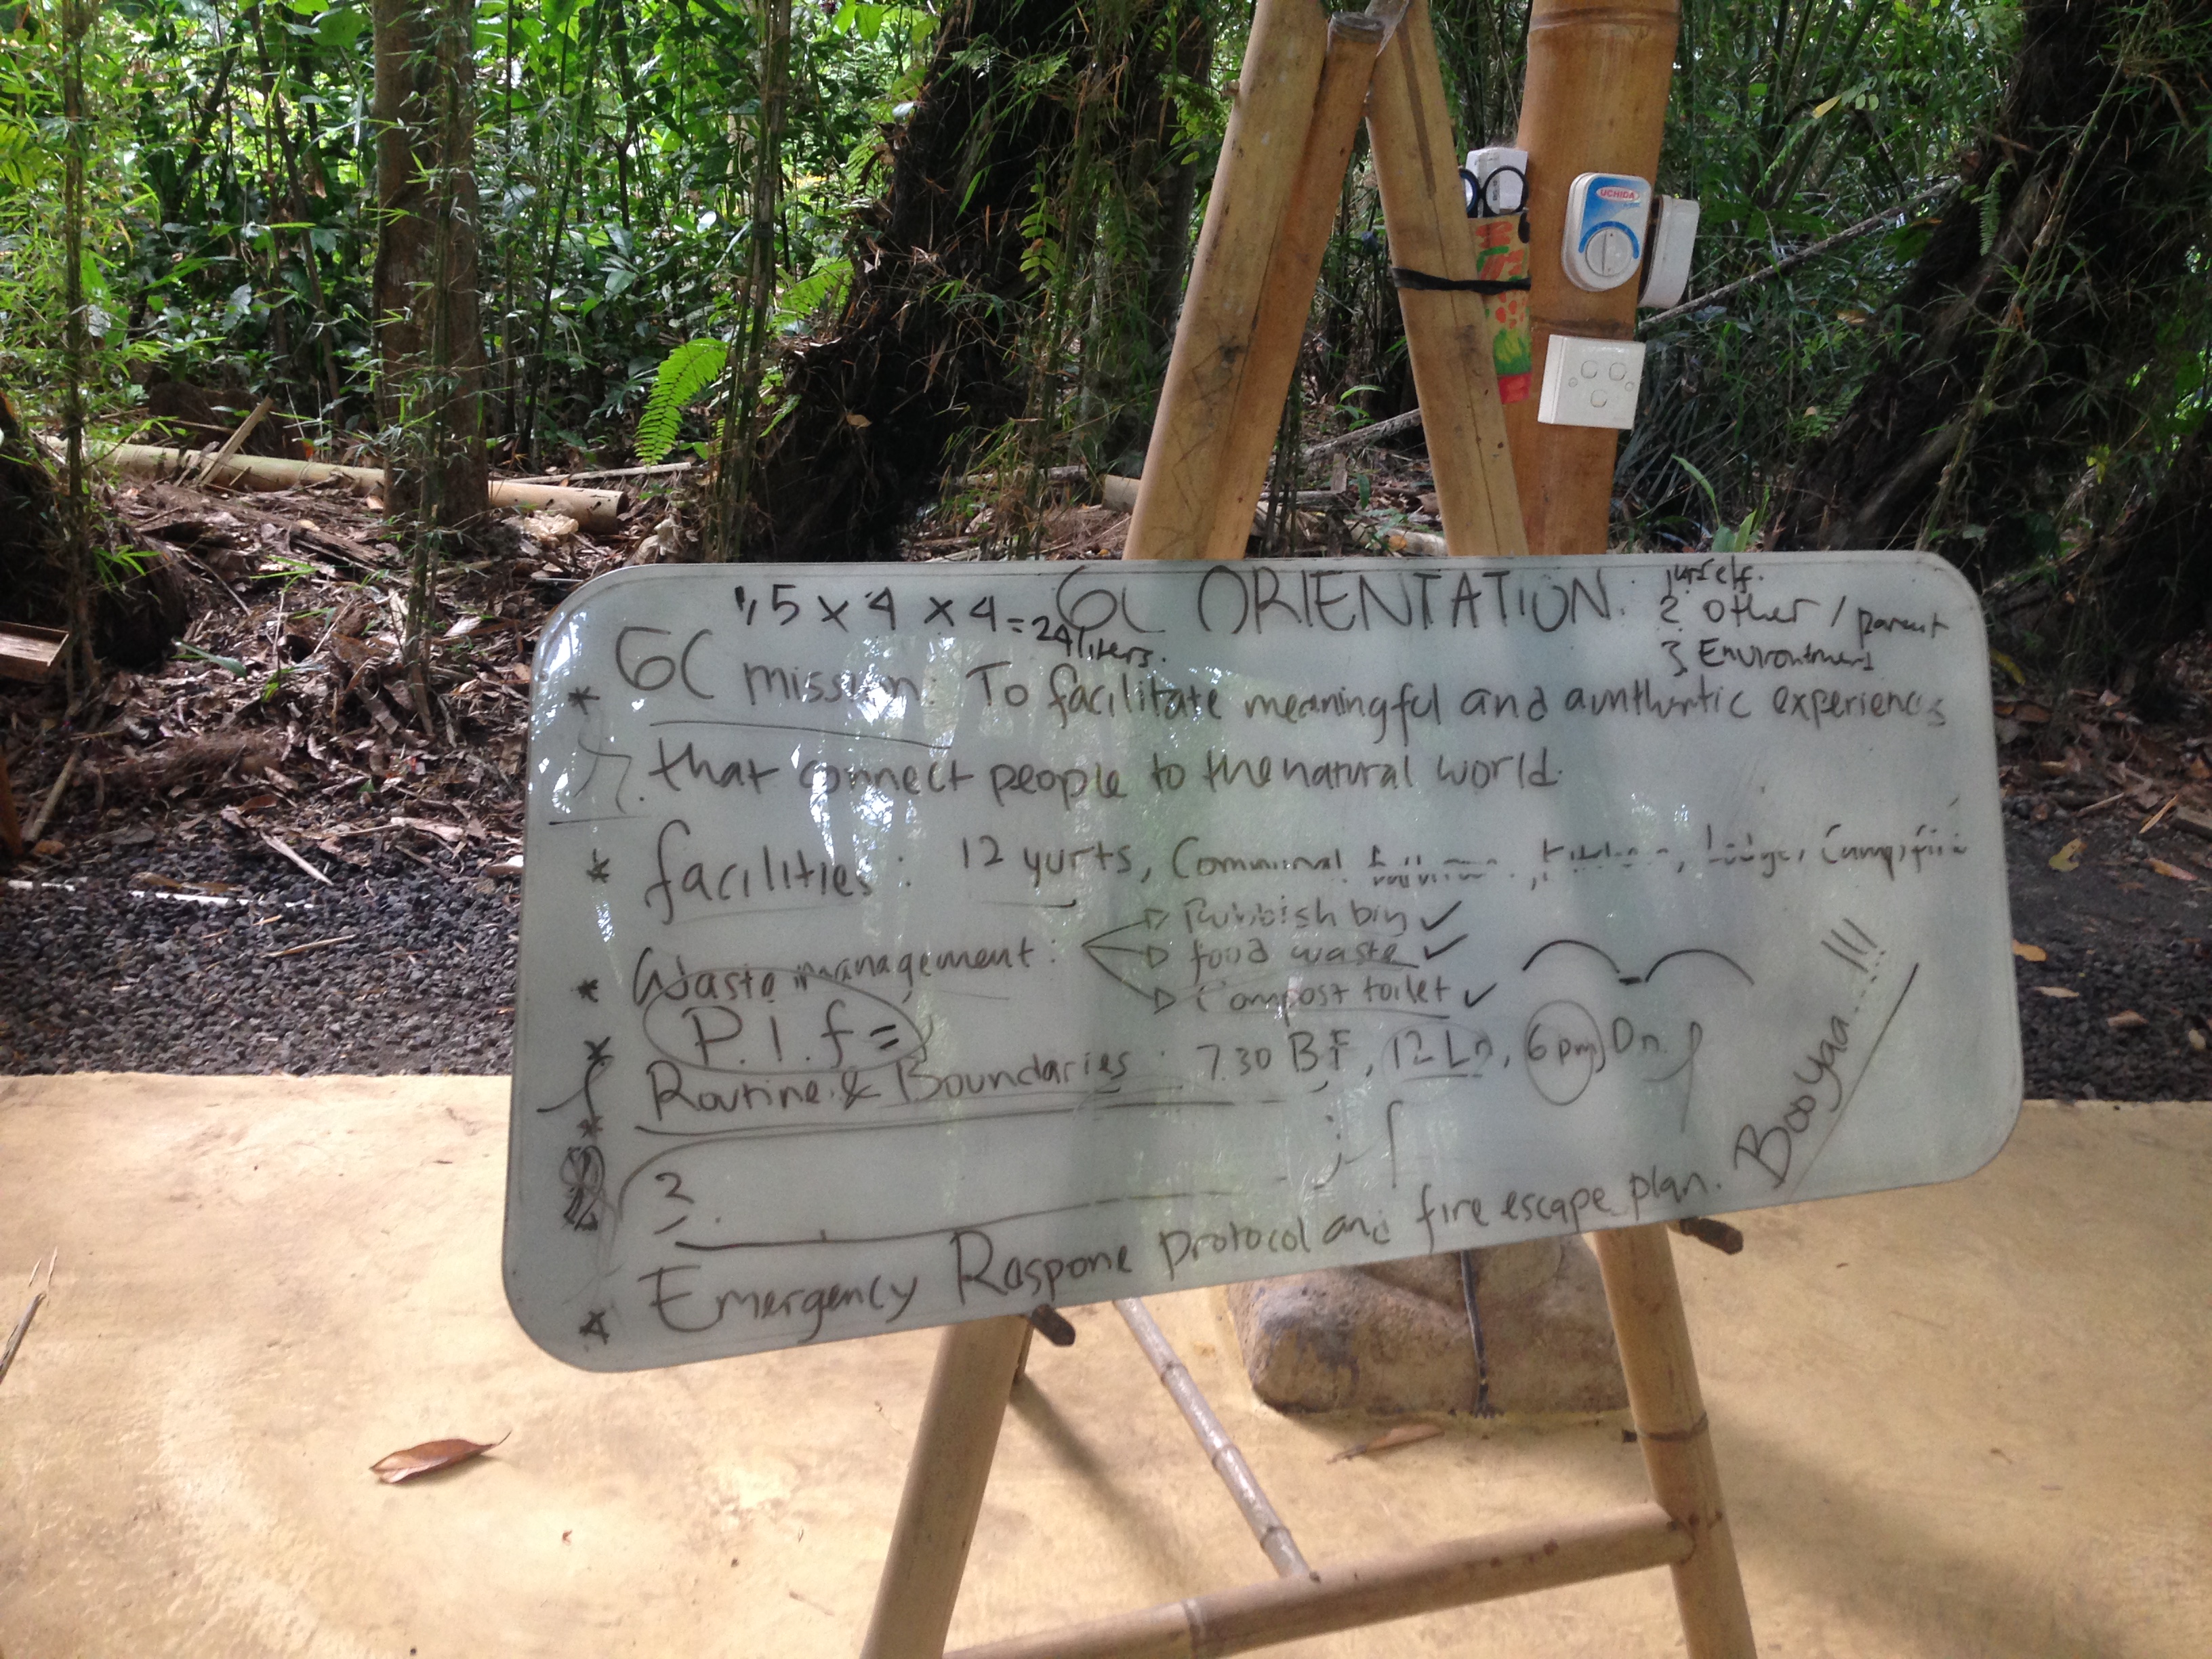 UCHIDA
1,5 x 4 x 4 = 24 liters.
GC ORIENTATION:
2 Other / parent
3 Environment
* GC mission: To facilitate meaningful and aunthuntic experiences
that connect people to the natural world.
* facilities: 12 yurts, Communal
* Waste management:
Rubbish bin ✓
food waste ✓
Compost toilet ✓
P.I.f =
* Routine & Boundaries: 7.30 BF, 12 Ln, 6pm Dn
2
* Emergency Raspone protocol and fire escape plan.
Booyaa....!!!